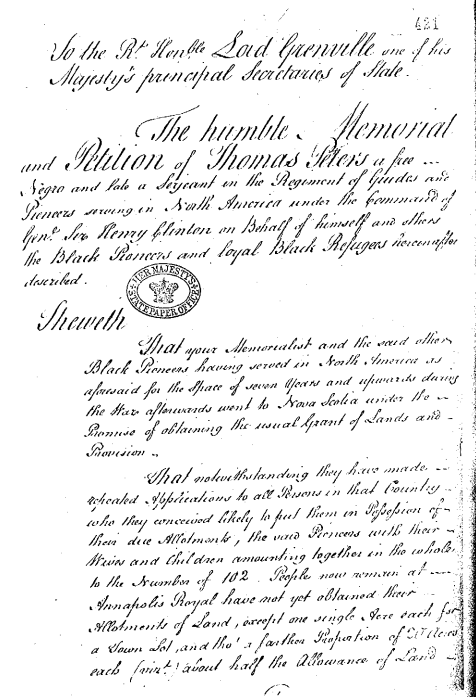 421
To the Rt. Honble Lord Grenville one of his
Majesty's principal Secretaries of State.
The humble Memorial
and Petition of Thomas Peters a free
Negro and late a Serjeant in the Regiment of Guides and
Pioneers serving in North America under the Command of
Genl. Sir Henry Clinton on Behalf of himself and others
the Black Pioneers and loyal Black Refugees hereinafter
described.
HER MAJESTY'S
STATE PAPER OFFICE
Sheweth
That your Memorialist and the said other
Black Pioneers having served in North America as
aforesaid for the Space of seven Years and upwards during
the War, afterwards went to Nova Scotia under the
Promise of obtaining the usual Grant of Lands and
Provision.
That notwithstanding they have made
repeated Applications to all Persons in that Country
who they conceived likely to put them in Possession of
their due Allotments, the said Pioneers with their
Wives and Children amounting together in the whole
to the Number of 102 People now remain at
Annapolis Royal have not yet obtained their
Allotments of Land, except one single Acre each for
a Town Lot, and tho' a farther Proportion of 20 Acres
each (vizt.) about half the Allowance of Land